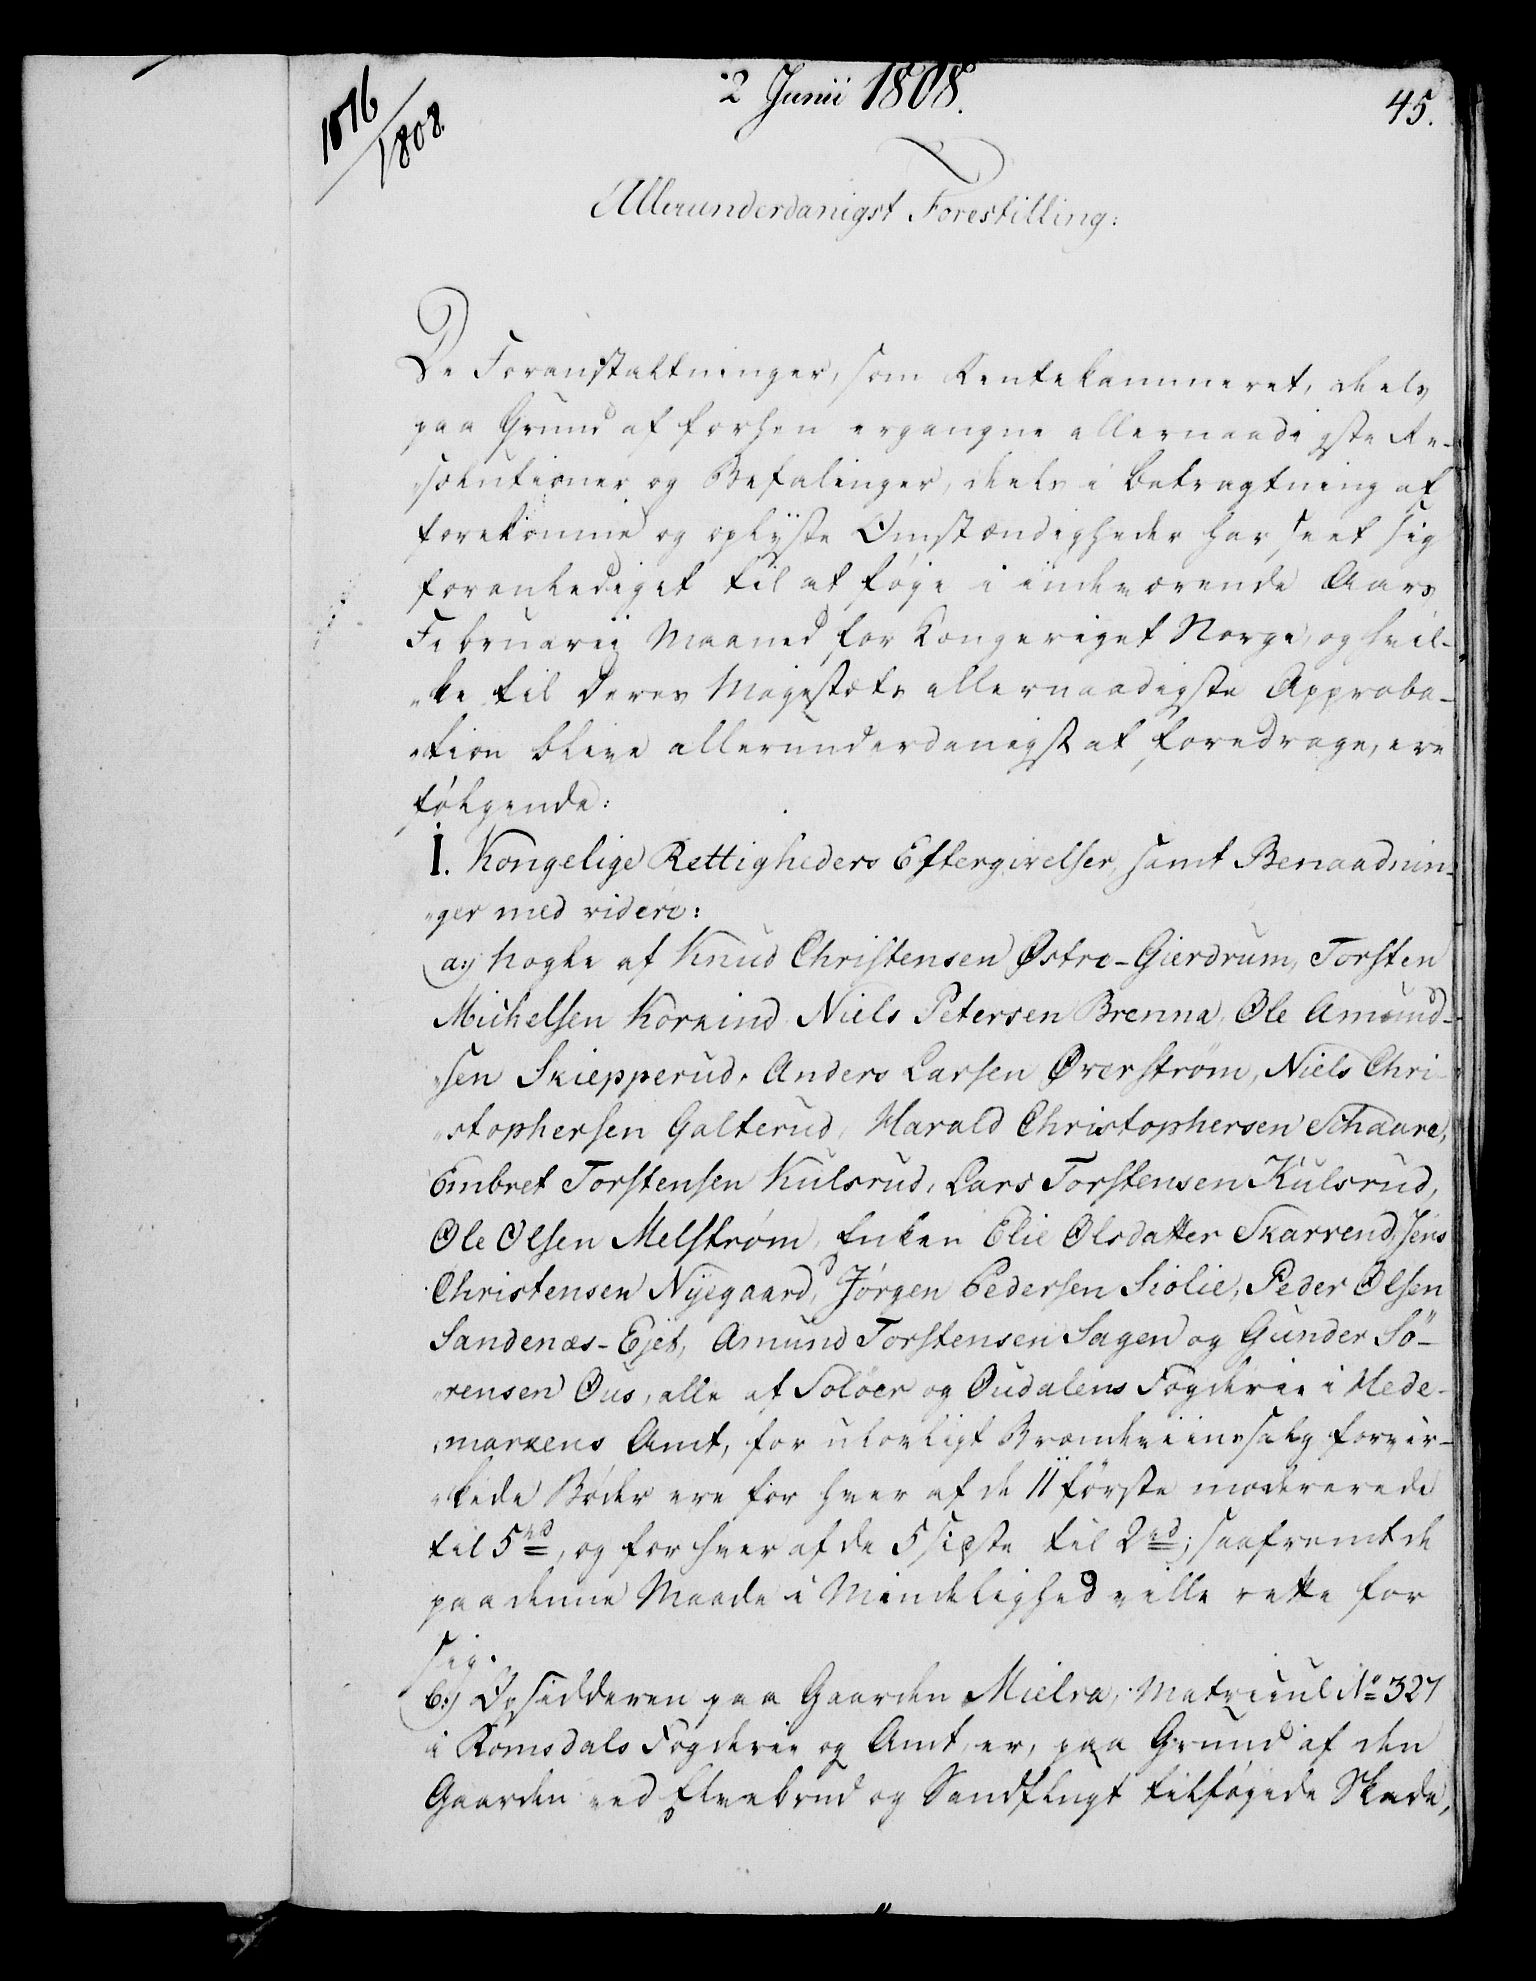 1076/1808.
2 Junii 1808.
45.
Allerunderdanigst Forestilling:
De Foranstaltninger, som Rentekammeret, deels
paa Grund af forhen ergangne allernaadigste Re-
solutioner og Befalinger, deels i Betragtning af
forekomne og oplyste Omstændigheder har seet sig
foranlediget til at føje i indeværende Aars
Februarij Maaned for Kongeriget Norge, og hvil-
"ke til Deres Majestæts allernaadigste Approba-
"tion blive allerunderdanigst at foredrage, ere
følgende:
I. Kongelige Rettigheders Eftergivelser, samt Benaadnin-
"ger med videre:
a:) Nogle af Knud Christensen Østre-Gierdrum, Torsten
Michelsen Kornind, Niels Petersen Brenna, Ole Amund-
"sen Skiepperud, Anders Larsen Øverstrøm, Niels Chri-
"stophersen Galterud, Harald Christophersen Schaare,
Embret Torstensen Kulsrud, Lars Torstensen Kulsrud,
Ole Olsen Melstrøm, Enken Elie Olsdatter Skarrend, Jens
Christensen Nyegaard, Jørgen Pedersen Siolie, Peder Olsen
Sandenæs-Ejet, Amund Torstensen Sagen og Gunder Sö-
"rensen Ous, alle af Soløer og Oudalens Fogderie i Hede-
"markens Amt, for ulovligt Brændeviinssalg forvir-
"kede Bøder ere for hver af de 11 første modererede
til 5 rd, og for hver af de 5 sidste til 2 rd; saafremt de
paa denne Maade i Mindelighed ville rette for
sig.
b:) Opsidderen paa Gaarden Mielva, Matricul No 327
i Romsdals Fogderie og Amt, er, paa Grund af den
Gaarden ved Elvebrud og Sandflugt tilføjede Skade,